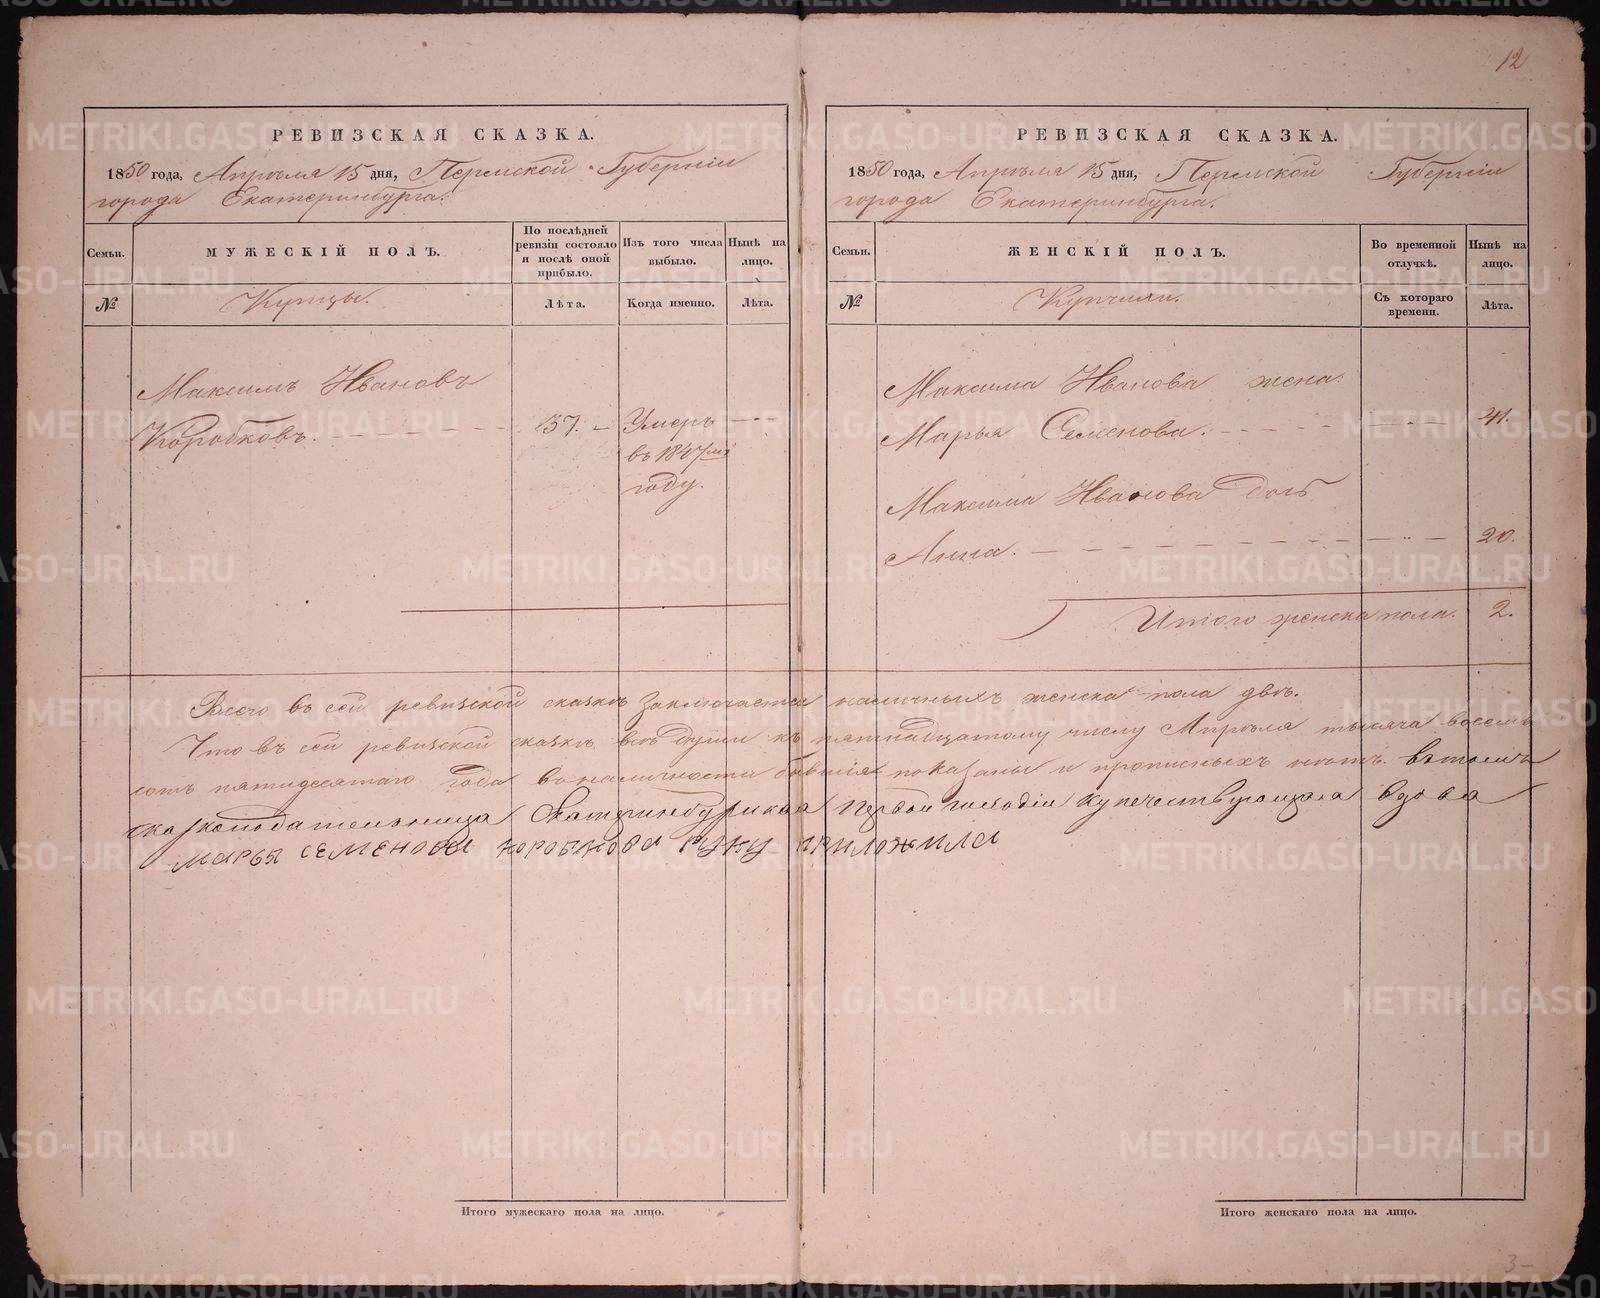 12
РЕВИЗСКАЯ СКАЗКА.
1850 года, Апрѣля 15 дня, Пермской Губерніи
города Екатеринбурга.
Семьи.
МУЖЕСКІЙ ПОЛЪ.
По послѣдней ревизіи состояло и послѣ оной прибыло.
Изъ того числа выбыло.
Нынѣ на лицо.
№
Купцы.
Лѣта.
Когда именно.
Лѣта.
Максимъ Ивановъ
Коробковъ. 37. Умеръ
въ 1847мъ
году.
РЕВИЗСКАЯ СКАЗКА.
1850 года, Апрѣля 15 дня, Пермской Губерніи
города Екатеринбурга.
Семьи.
ЖЕНСКІЙ ПОЛЪ.
Во временной отлучкѣ.
Нынѣ на лицо.
№
Купчихи.
Съ котораго времени.
Лѣта.
Максима Иванова жена
Марья Семенова. 41.
Максима Иванова дочь
Анна. 20.
Итого женска пола. 2.
Всего въ сей ревизской сказкѣ заключается наличныхъ женска пола двѣ.
Что въ сей ревизской сказкѣ всѣ души къ пятнадцатому числу Апрѣля тысяча восемь
сотъ пятидесятаго года въ наличности бывшія показаны и прописныхъ нѣтъ. въ томъ
сказкоподательница Екатеринбургская первой гильдіи купечествующая вдова
Марья Семенова Коробкова руку приложила
Итого мужескаго пола на лицо.
Итого женскаго пола на лицо.
3-
METRIKI.GASO-URAL.RU